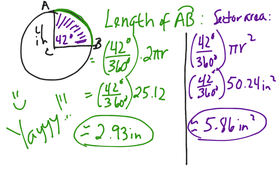 A
4 in
42°
B
C
Yayyy...!!!
Length of AB:
= (42°/360°) · 2πr
= (42°/360°) 25.12
≈ 2.93 in
Sector area:
(42°/360°) πr²
(42°/360°) 50.24 in²
≈ 5.86 in²